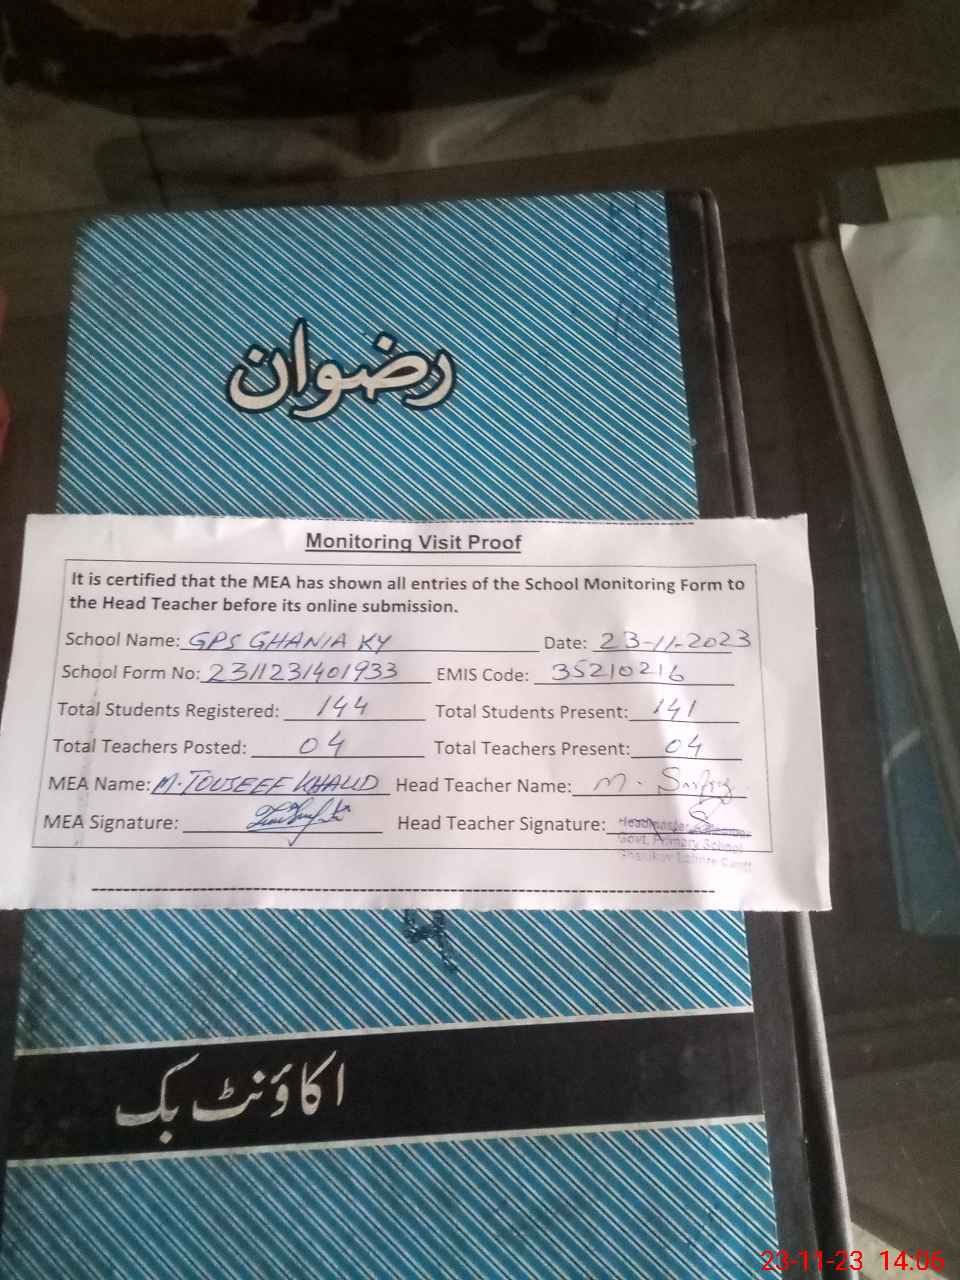 رضوان
Monitoring Visit Proof
It is certified that the MEA has shown all entries of the School Monitoring Form to
the Head Teacher before its online submission.
School Name: GPS GHANIA KY Date: 23-11-2023
School Form No: 2311231401933 EMIS Code: 35210216
Total Students Registered: 144 Total Students Present: 141
Total Teachers Posted: 04 Total Teachers Present: 04
MEA Name: M. TOUSEEF KHALID Head Teacher Name: M.
MEA Signature: Head Teacher Signature:
Headmaster
Govt. Primary School
Lahore Cantt
اکاؤنٹ بک
23-11-23 14:06